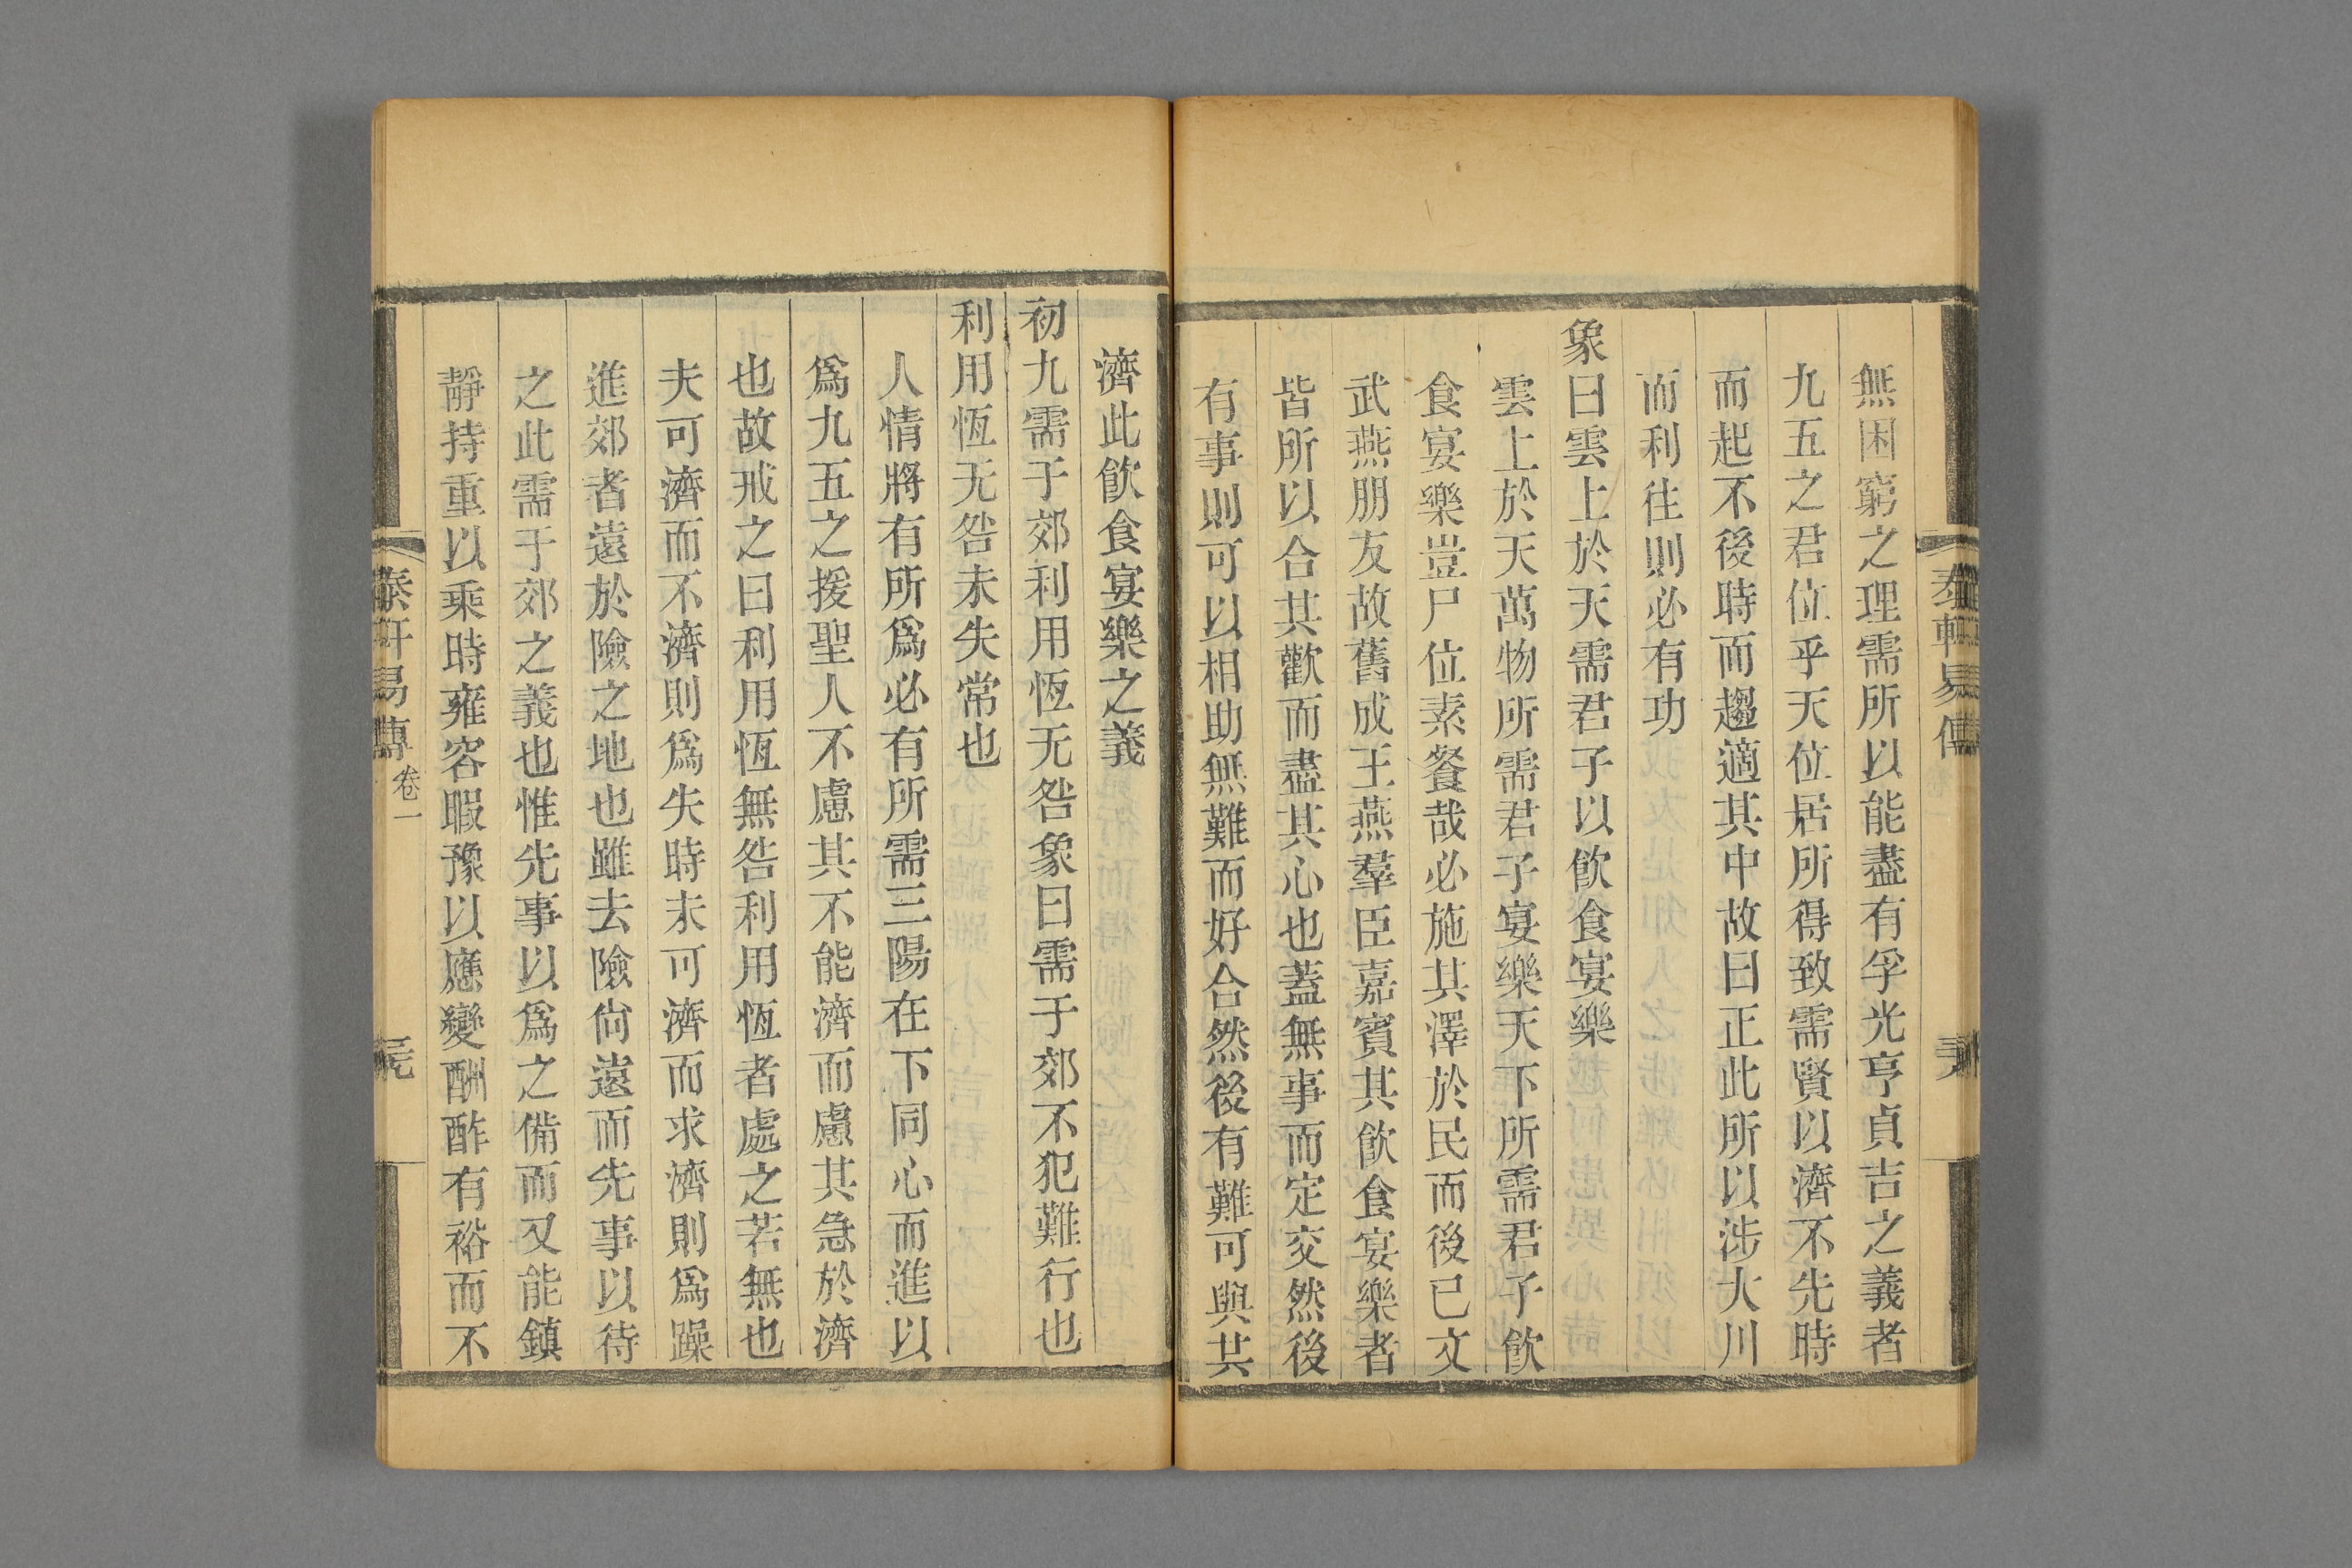 無困窮之理需所以能盡有孚光亨貞吉之義者
九五之君位乎天位居所得致需賢以濟不先時
而起不後時而趨適其中故曰正此所以涉大川
而利往則必有功
象曰雲上於天需君子以飲食宴樂
雲上於天萬物所需君子宴樂天下所需君子飲
食宴樂豈尸位素餐哉必施其澤於民而後已文
武燕朋友故舊成王燕羣臣嘉賓其飲食宴樂者
皆所以合其歡而盡其心也蓋無事而定交然後
有事則可以相助無難而好合然後有難可與共
濟此飲食宴樂之義
初九需于郊利用恆无咎象曰需于郊不犯難行也
利用恆无咎未失常也
人情將有所爲必有所需三陽在下同心而進以
爲九五之援聖人不慮其不能濟而慮其急於濟
也故戒之曰利用恆無咎利用恆者處之若無也
夫可濟而不濟則爲失時未可濟而求濟則爲躁
進郊者遠於險之地也雖去險尙遠而先事以待
之此需于郊之義也惟先事以爲之備而又能鎮
靜持重以乘時雍容暇豫以應變酬酢有裕而不
易傳卷一